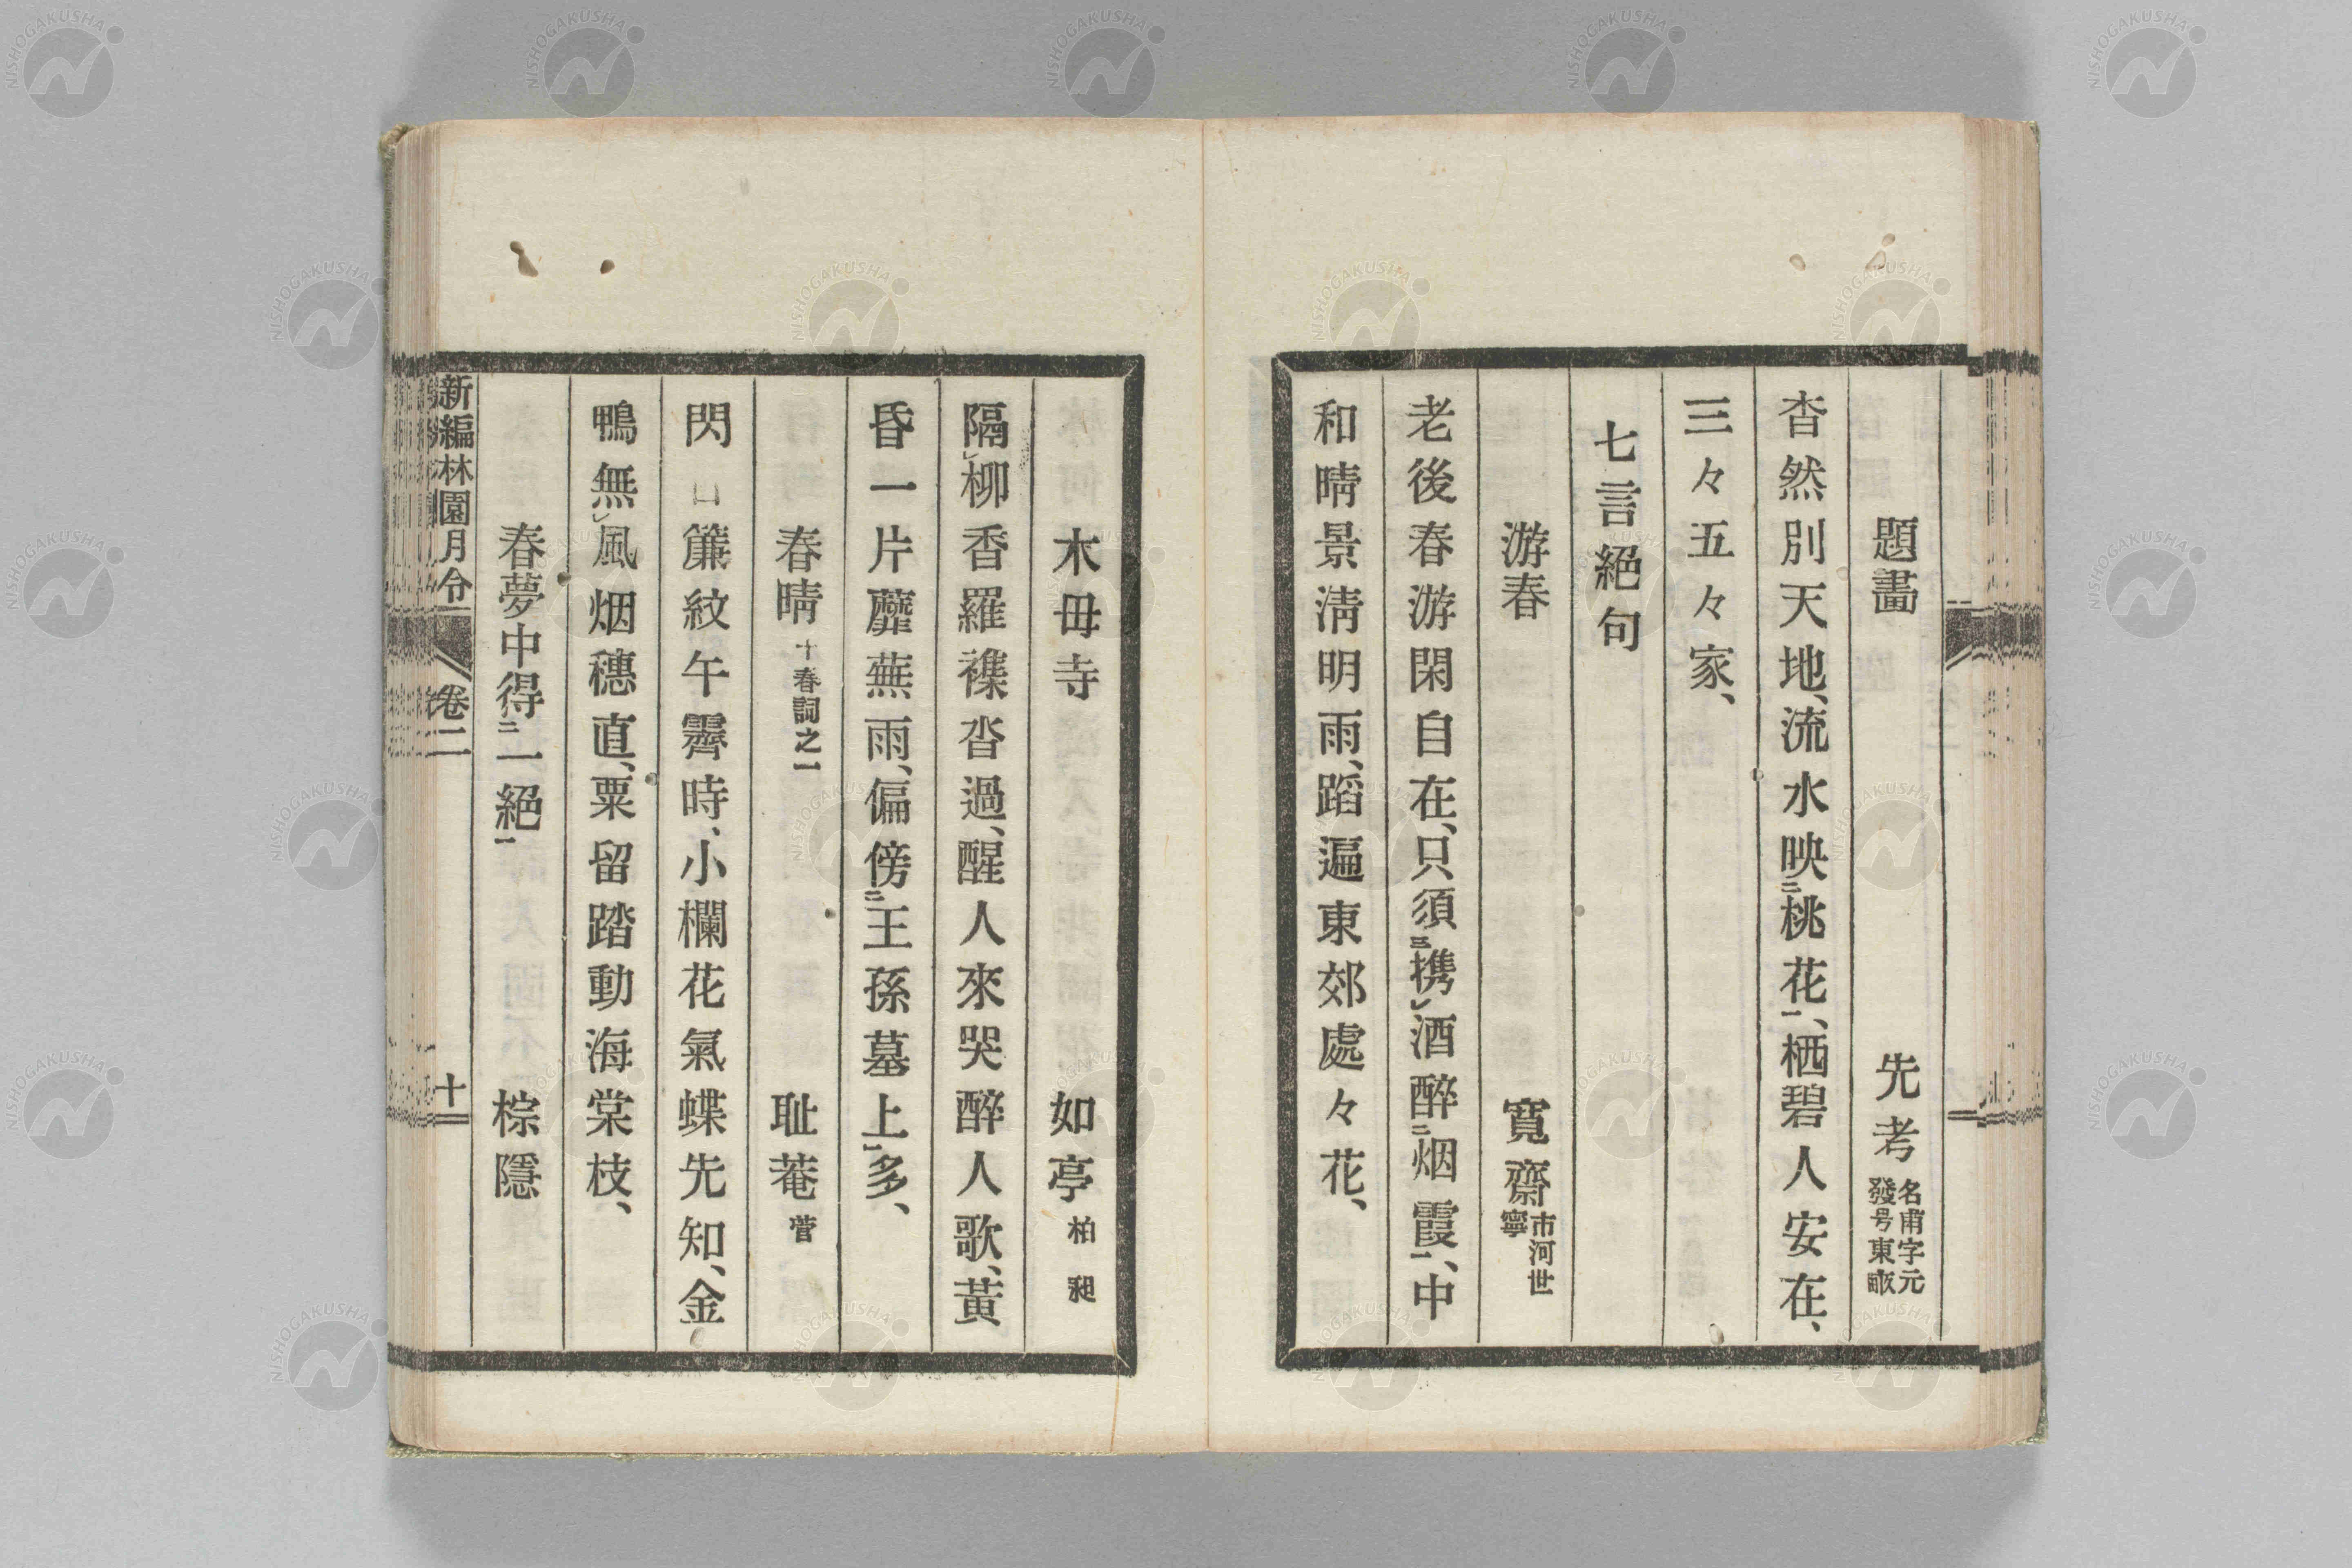 題畫　先考 名甫字元發号東畞
杳然別天地、流水映二桃花一、栖碧人安在、
三々五々家、
七言絕句
游春　寬齋 市河世寧
老後春游閑自在、只須三携レ酒醉二烟霞一、中
和晴景淸明雨、蹈遍東郊處々花、
木毋寺　如亭 柏昶
隔レ柳香羅襍沓過、醒人來哭醉人歌、黃
昏一片蘼蕪雨、偏傍二王孫墓上一多、
春晴 十春詞之一　耻菴 菅
閃口簾紋午霽時、小欄花氣蝶先知、金
鴨無レ風烟穗直、粟留踏動海棠枝、
春夢中得二一絕一　棕隱
新編林園月令　卷二　十
NISHOGAKUSHA